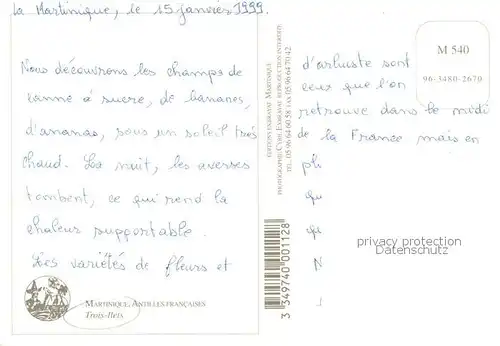 La Martinique, le 15 janvier 1999.
Nous découvrons les champs de
canne à sucre, de bananes,
d'ananas, sous un soleil très
chaud. La nuit, les averses
tombent, ce qui rend la
chaleur supportable.
Les variétés de fleurs et
d'arbuste sont
ceux que l'on
retrouve dans le midi
de la France mais en
pl
qu
qu
N
MARTINIQUE, ANTILLES FRANÇAISES
Trois-Ilets
EDITION EXBRAYAT MARTINIQUE
PHOTOGRAPHIE CYRIL EXBRAYAT REPRODUCTION INTERDITE
TEL. 05 96 64 60 58 FAX 05 96 64 70 42
3 349740 001128
M 540
96-3480-2670
privacy protection
Datenschutz